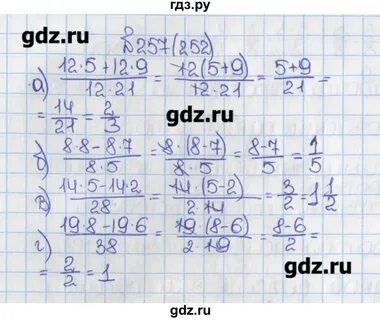 гдз.ру
№257(252)
gdz.ru gdz.ru
а) (12·5+12·9)/(12·21) = (12(5+9))/(12·21) = (5+9)/21 =
= 14/21 = 2/3
б) (8·8-8·7)/(8·5) = (8·(8-7))/(8·5) = (8-7)/5 = 1/5
в) (14·5-14·2)/28 = (14·(5-2))/(2·14) = 3/2 = 1 1/2
г) (19·8-19·6)/38 = (19(8-6))/(2·19) = (8-6)/2 =
= 2/2 = 1
gdz.ru gdz.ru